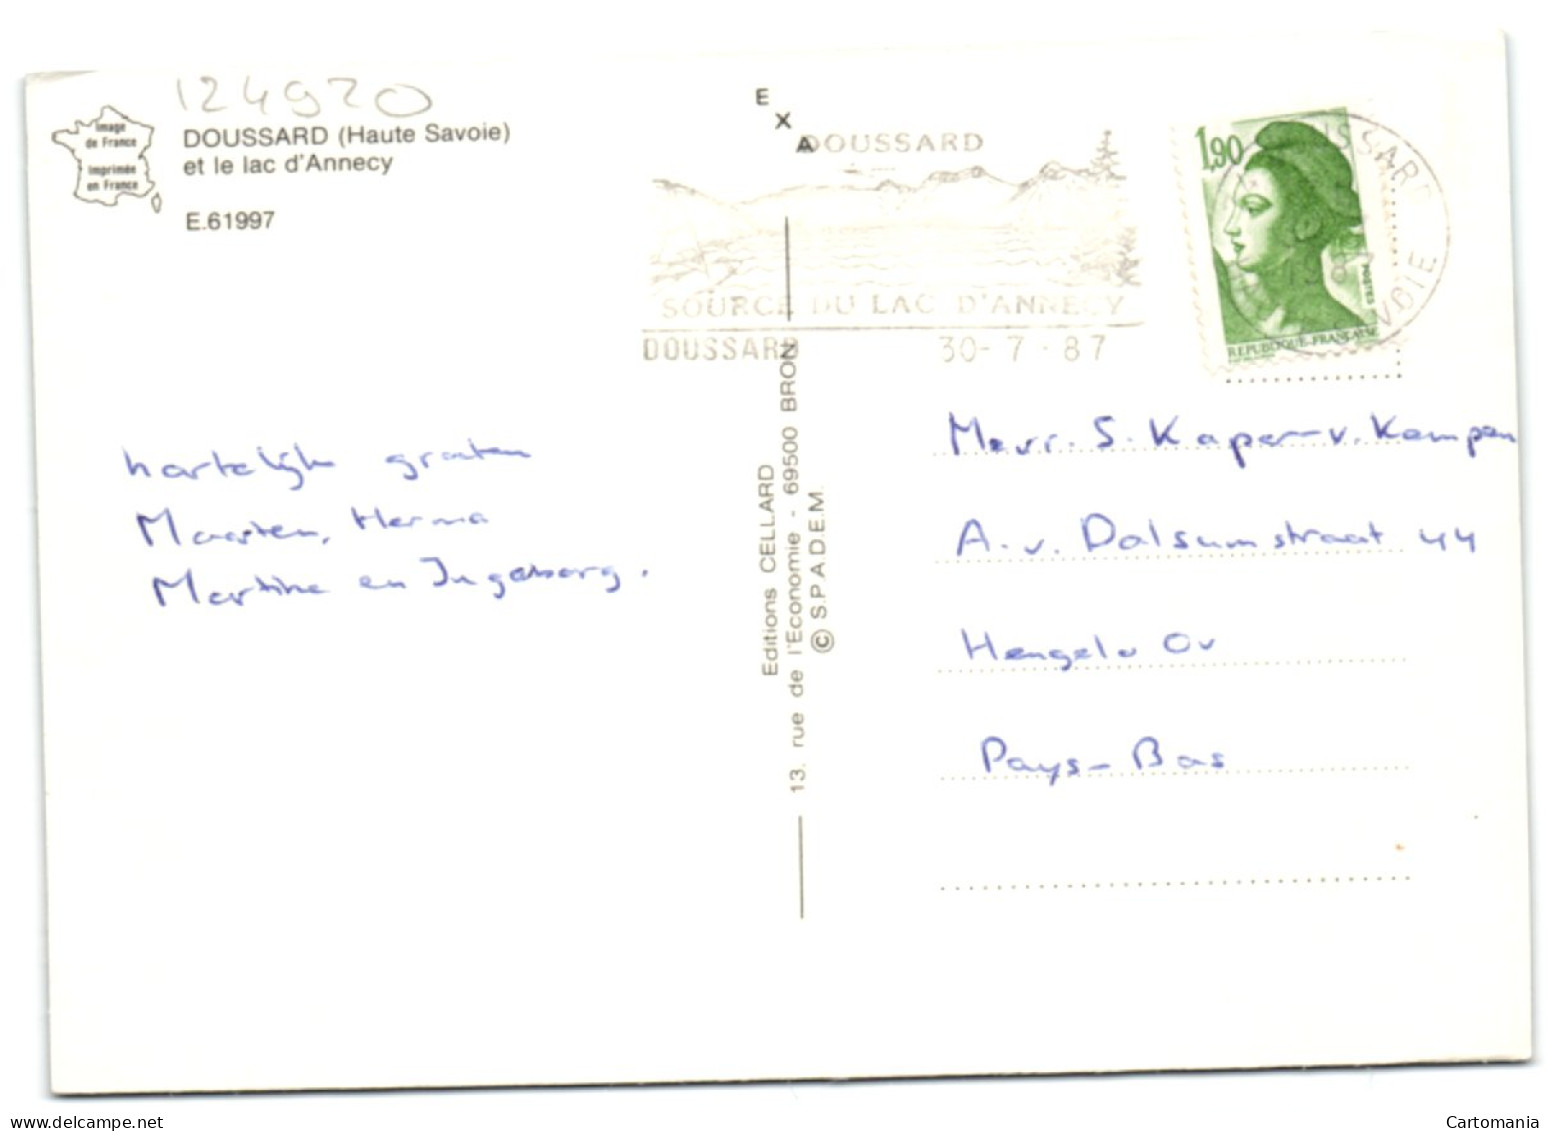 124920
Image
de France
Imprimée
en France
DOUSSARD (Haute Savoie)
et le lac d'Annecy
E.61997
EXA
DOUSSARD
SOURCE DU LAC D'ANNECY
DOUSSARD 30-7-87
1,90
POSTES
REPUBLIQUE-FRANÇAISE
DOUSSARD
SAVOIE
hartelijke groeten
Maarten, Herma
Martine en Ingeborg.
Editions CELLARD
13. rue de l'Économie - 69500 BRON
© S.P.A.D.E.M.
Mevr. S. Kaper-v. Kampen
A. v. Dalsumstraat 44
Hengelo Ov
Pays-Bas
Cartomania